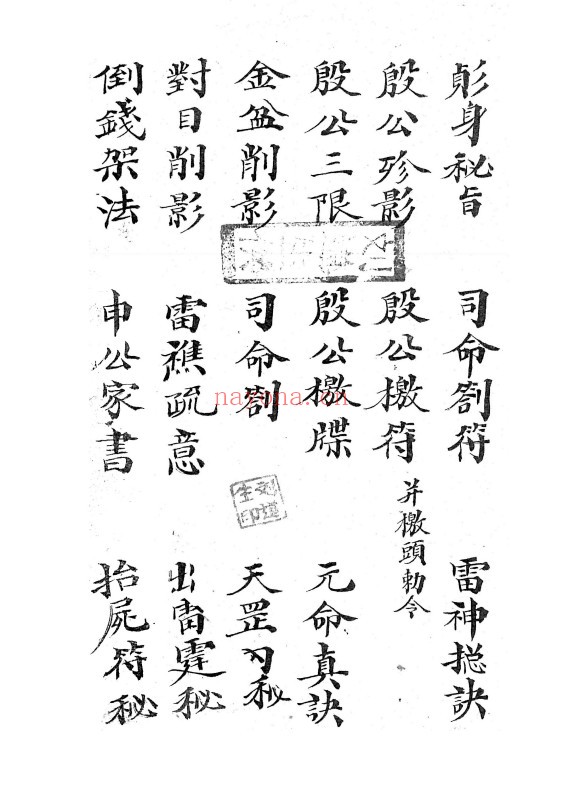 身秘旨 司命劄符 雷神捴訣
殷公殄影 殷公檄符 并檄頭勅令
殷公三限 殷公檄牒 元命真訣
金盆削影 司命劄 天罡秘
對目削影 雷樵疏意 出雷霆秘
倒錢架法 申公家書 抬屍符秘
nayona.cn